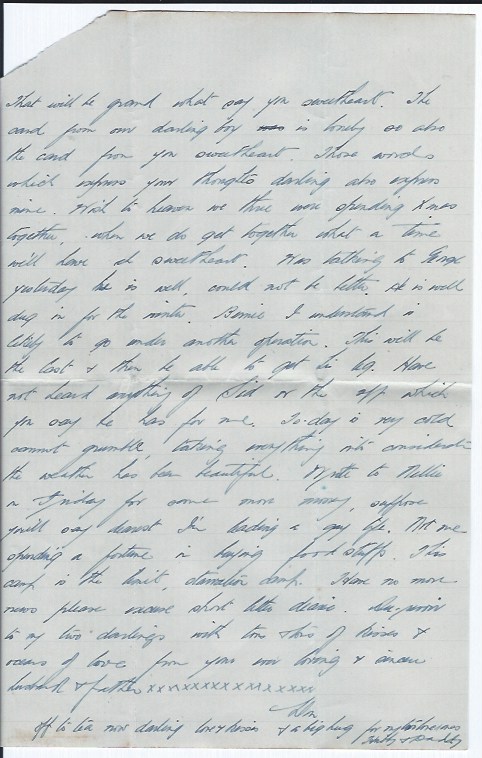 That will be grand what say you sweetheart. The
card from our darling boy is lovely so also
the card from you sweetheart. Those words
which express your thoughts darling also express
mine. Wish to heaven we three were spending Xmas
together, when we do get together what a time
will have eh sweetheart. Was talking to George
yesterday he is well, could not be better. He is well
dug in for the winter. Bernie I understand is
likely to go under another operation. This will be
the last & then be able to get his leg. Have
not heard anything of Sid or the which
you say he has for me. To-day is very cold
cannot grumble, taking everything into considerati
the weather has been beautiful. Wrote to Nellie
on Friday for some more money, suppose
you'll say dearest I'm leading a gay life. Not me
spending a fortune in buying food stuffs. This
camp is the limit, starvation camp. Have no more
news please excuse short letter dearie. Au-revoir
to my two darlings with tons & tons of kisses &
oceans of love from your ever loving & sincere
husband & father xxxxxxxxxxxxxxxxx
Off to tea now darling love & kisses & a big hug for my
& Daddy